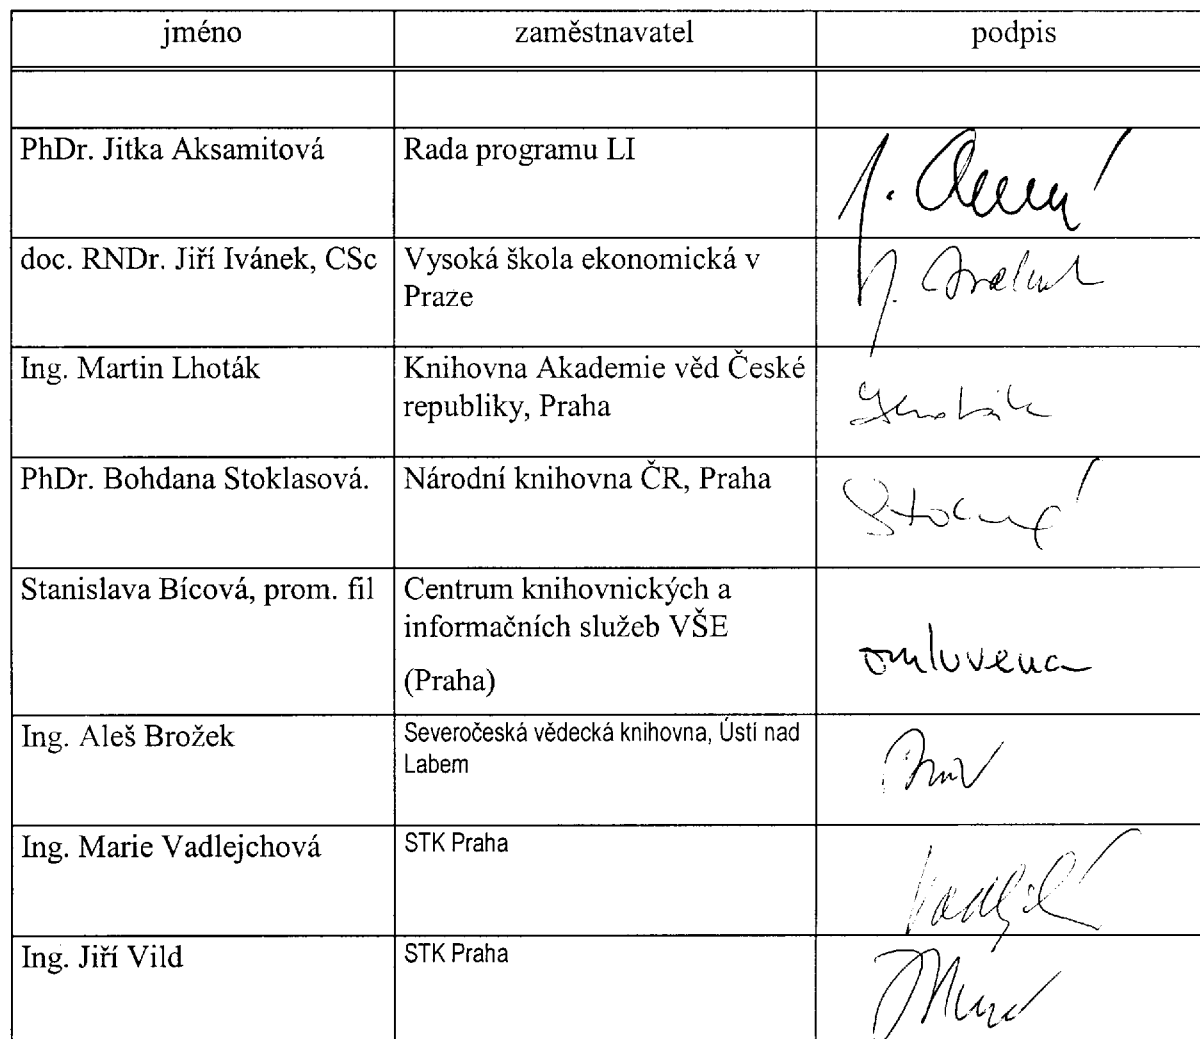 jméno zaměstnavatel podpis
PhDr. Jitka Aksamitová Rada programu LI
doc. RNDr. Jiří Ivánek, CSc Vysoká škola ekonomická v
Praze
Ing. Martin Lhoták Knihovna Akademie věd České
republiky, Praha
Lhoták
PhDr. Bohdana Stoklasová. Národní knihovna ČR, Praha
Stanislava Bícová, prom. fil Centrum knihovnických a
informačních služeb VŠE
omluvena
(Praha)
Ing. Aleš Brožek Severočeská vědecká knihovna, Ústí nad
Labem
Ing. Marie Vadlejchová STK Praha
Ing. Jiří Vild STK Praha